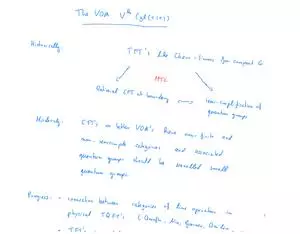 The VOA V^k(gl(1|1))
Historically TFT's like Chern-Simons for compact G
MTC
Rational CFT at boundary semi-simplification of
quantum groups
CFT's or better VOA's have non-finite and
non-semisimple categories and associated
quantum groups should be unrolled small
quantum groups
Progress: - connection between categories of line operators in
physical TQFT's